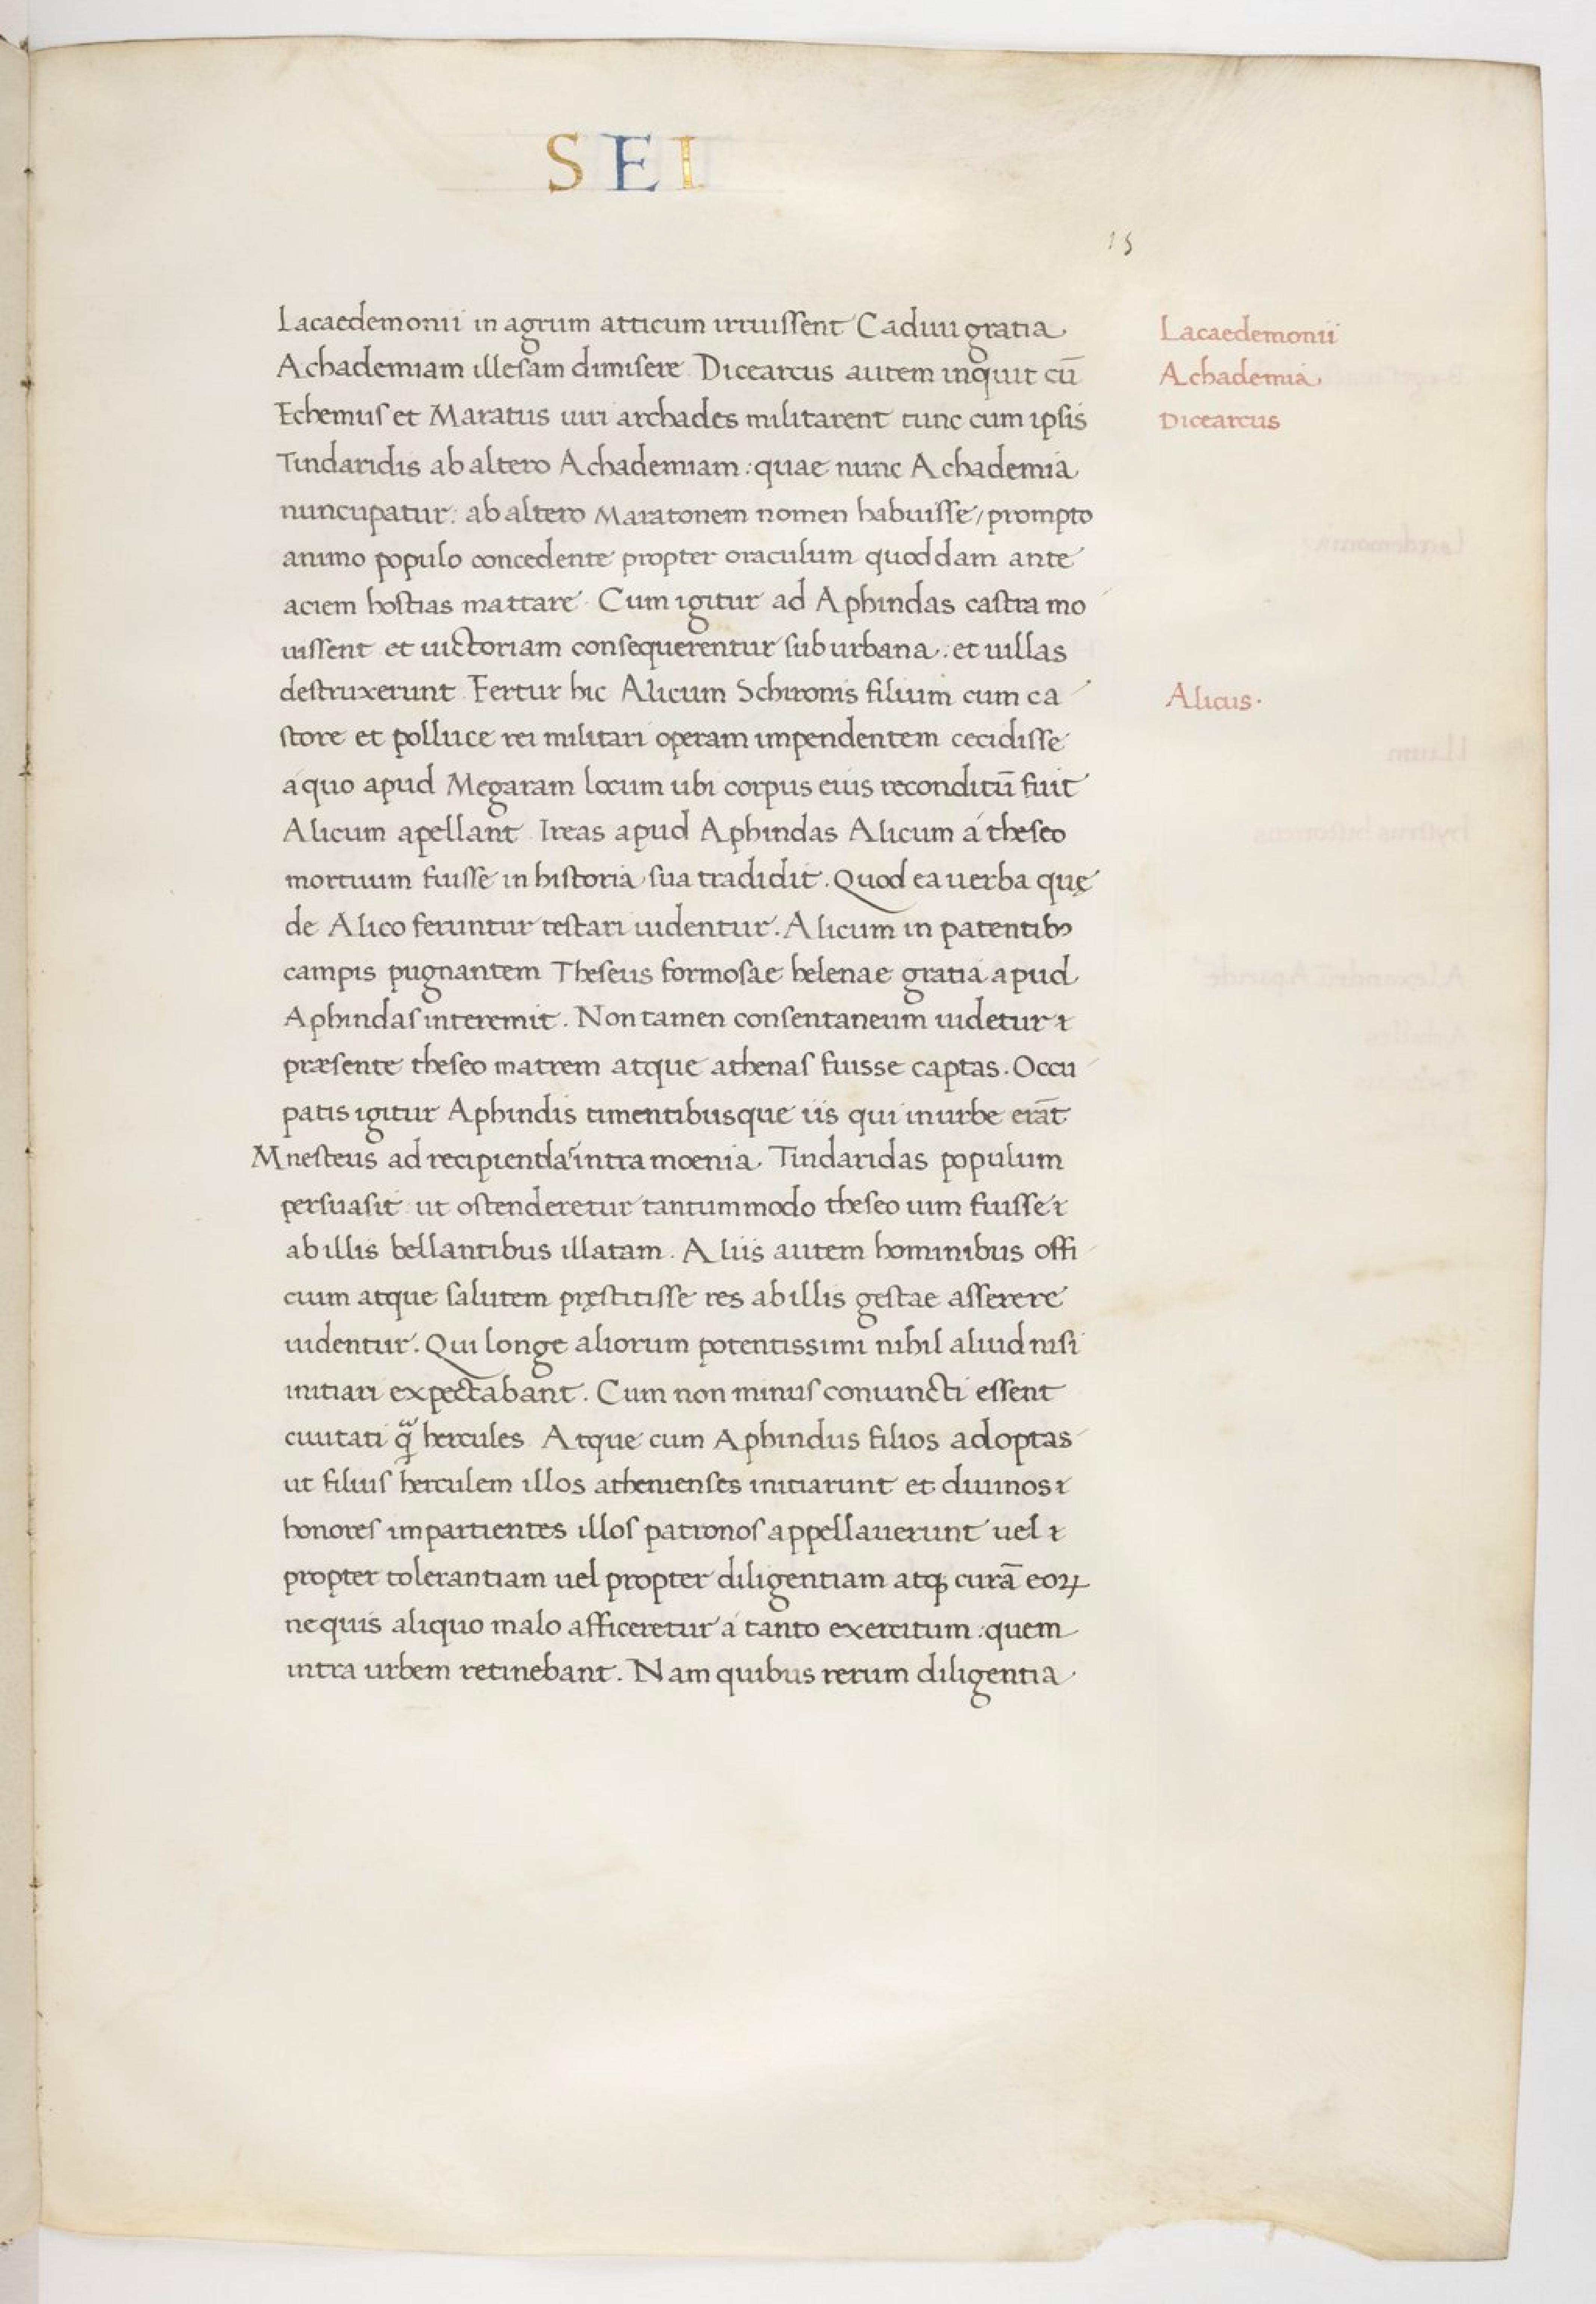 SEI
15
Lacaedemonii in agrum atticum irruissent Caduii gratia
Achademiam illesam dimisere. Dicearcus autem inquit cū
Echemus et Maratus uiri archades militarent tunc cum ipsis
Tindaridis ab altero Achademiam: quae nunc Achademia
nuncupatur: ab altero Maratonem nomen habuisse/ prompto
animo populo concedente propter oraculum quoddam ante
aciem hostias mattare. Cum igitur ad Aphindas castra mo
uissent et uictoriam consequerentur suburbana: et uillas
destruxerunt. Fertur hic Alicum Schironis filium cum ca
store et polluce rei militari operam impendentem cecidisse
á quo apud Megaram locum ubi corpus eius reconditū fuit
Alicum apellant. Ireas apud Aphindas Alicum á theseo
mortuum fuisse in historia sua tradidit. Quod ea uerba quę
de Alico feruntur testari uidentur. Alicum in patentibꝰ
campis pugnantem Theseus formosae helenae gratia apud
Aphindas interemit. Non tamen consentaneum uidetur
præsente theseo matrem atque athenas fuisse captas. Occu
patis igitur Aphindis timentibusque iis qui in urbe erāt
Mnesteus ad recipiendas intra moenia Tindaridas populum
persuasit ut ostenderetur tantummodo theseo uim fuisse
ab illis bellantibus illatam. Aliis autem hominibus offi
cium atque salutem pręstitisse res ab illis gestae asserere
uidentur. Qui longe aliorum potentissimi nihil aliud nisi
initiari expectabant. Cum non minus coniuncti essent
ciuitati q̄ hercules. Atque cum Aphindus filios adoptas
ut filius herculem illos athenienses initiarunt et diuinos
honores impartientes illos patronos appellauerunt uel
propter tolerantiam uel propter diligentiam atqꝫ curā eoꝝ
ne quis aliquo malo afficeretur á tanto exercitum: quem
intra urbem retinebant. Nam quibus rerum diligentia
Lacaedemonii
Achademia
Dicearcus
Alicus.